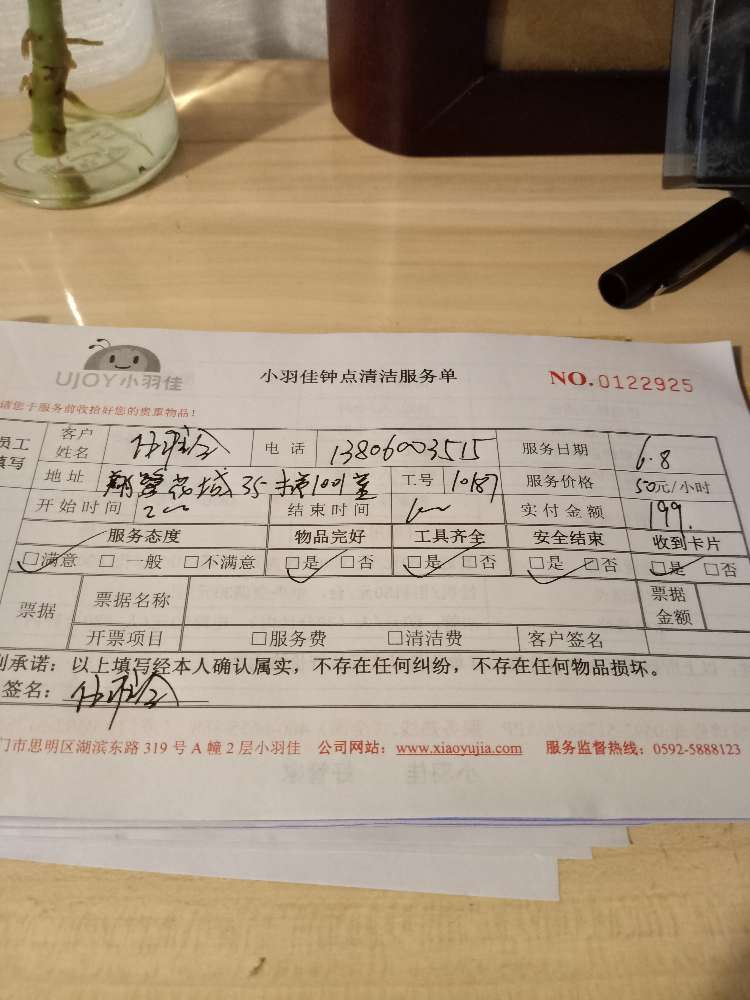 UJOY小羽佳
小羽佳钟点清洁服务单
NO.0122925
请您于服务前收拾好您的贵重物品！
员工填写 客户姓名 电话 13806003515 服务日期 6.8
地址 城35 1001室 工号 10187 服务价格 50元/小时
开始时间 结束时间 实付金额 199.
服务态度 物品完好 工具齐全 安全结束 收到卡片
□满意 □一般 □不满意 □是 □否 □是 □否 □是 □否 □是 □否
票据 票据名称 票据金额
开票项目 □服务费 □清洁费 客户签名
承诺：以上填写经本人确认属实，不存在任何纠纷，不存在任何物品损坏。
签名：
门市思明区湖滨东路 319 号 A 幢 2 层小羽佳 公司网站：www.xiaoyujia.com 服务监督热线：0592-5888123